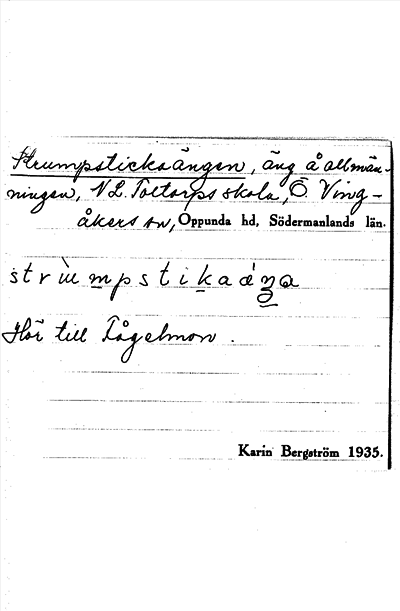 Strumpstickaängen, äng å allmän-
ningen, N2. Toltorps skola, Ö. Ving-
åkers sn, Oppunda hd, Södermanlands län.
strùmpstikaáŋa
Hör till Fågelmon.
Karin Bergström 1935.